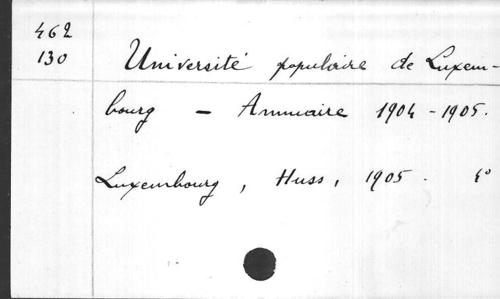 462
130
Université populaire de Luxem-
bourg - Annuaire 1904-1905.
Luxembourg, Huss, 1905. 4°